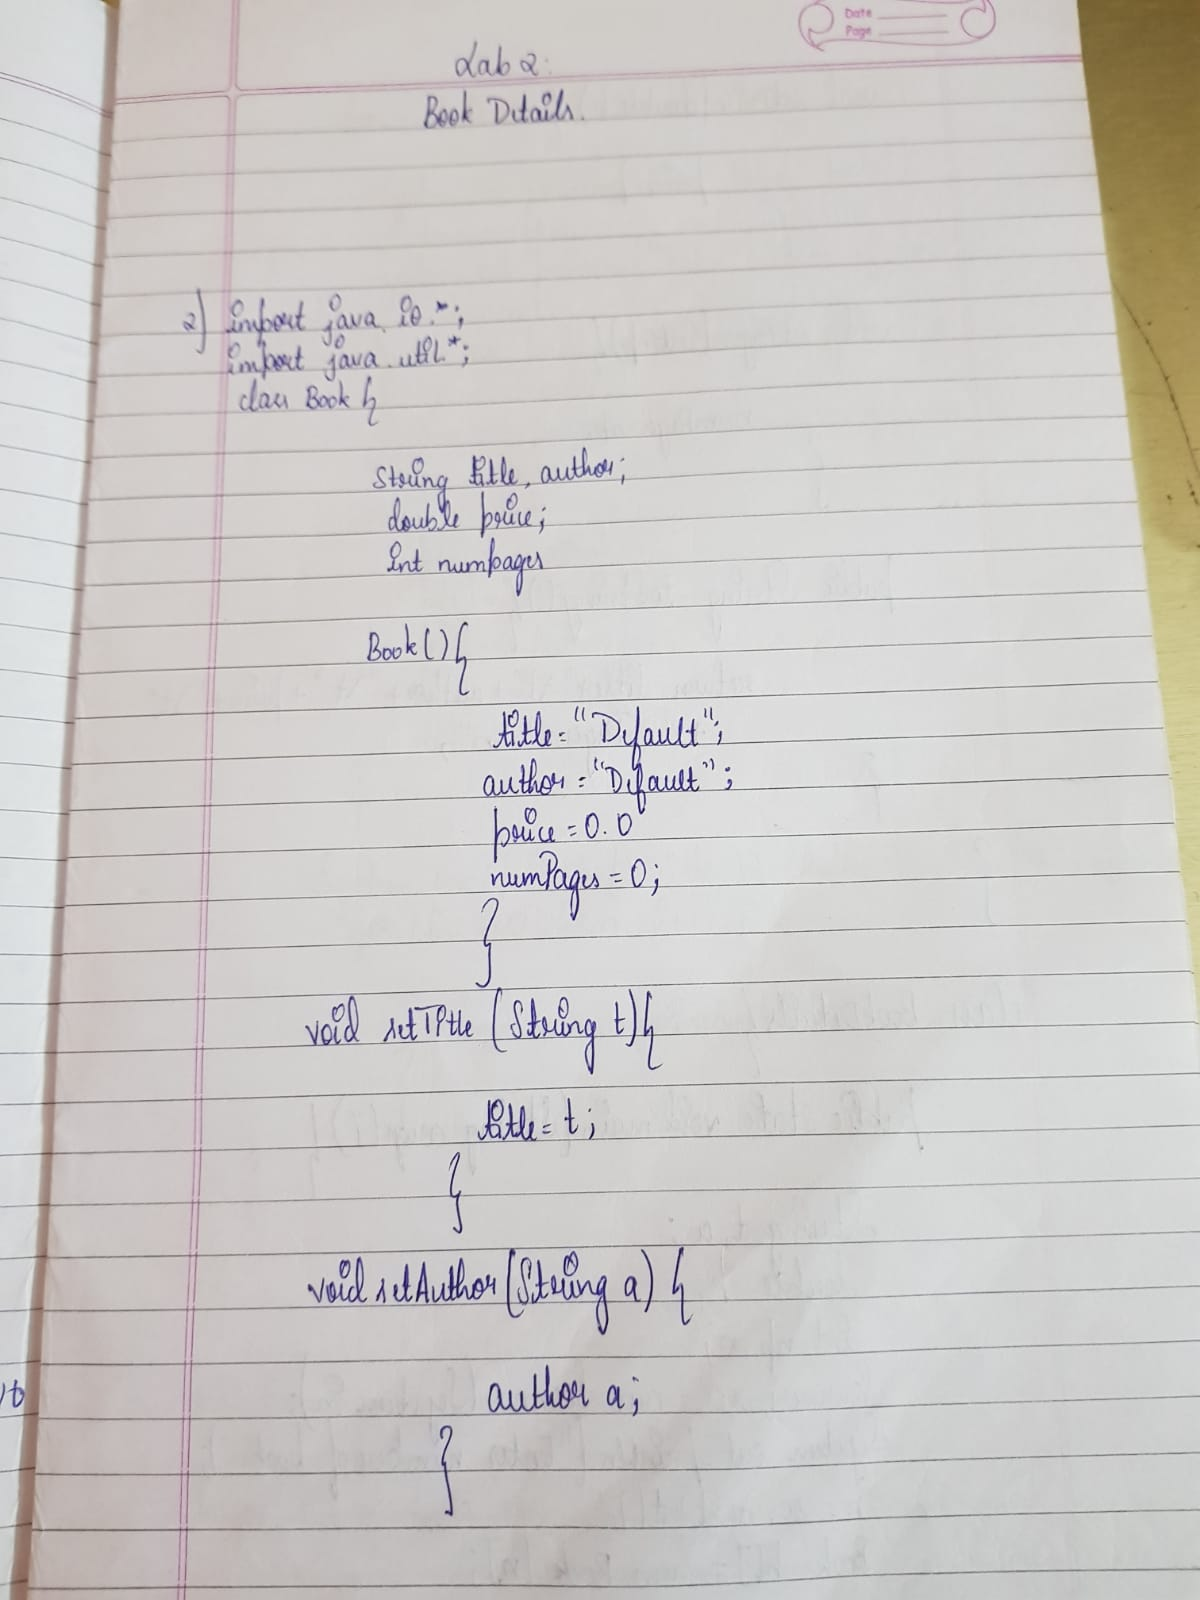 Date
Page
Lab 2:
Book Details.
2) import java.io.*;
import java.util*;
class Book {
String title, author;
double price;
int numpages
Book(){
title = "Default";
author = "Default";
price = 0.0
numPages = 0;
}
void setTitle (String t){
title = t;
}
void setAuthor (String a) {
author a;
}